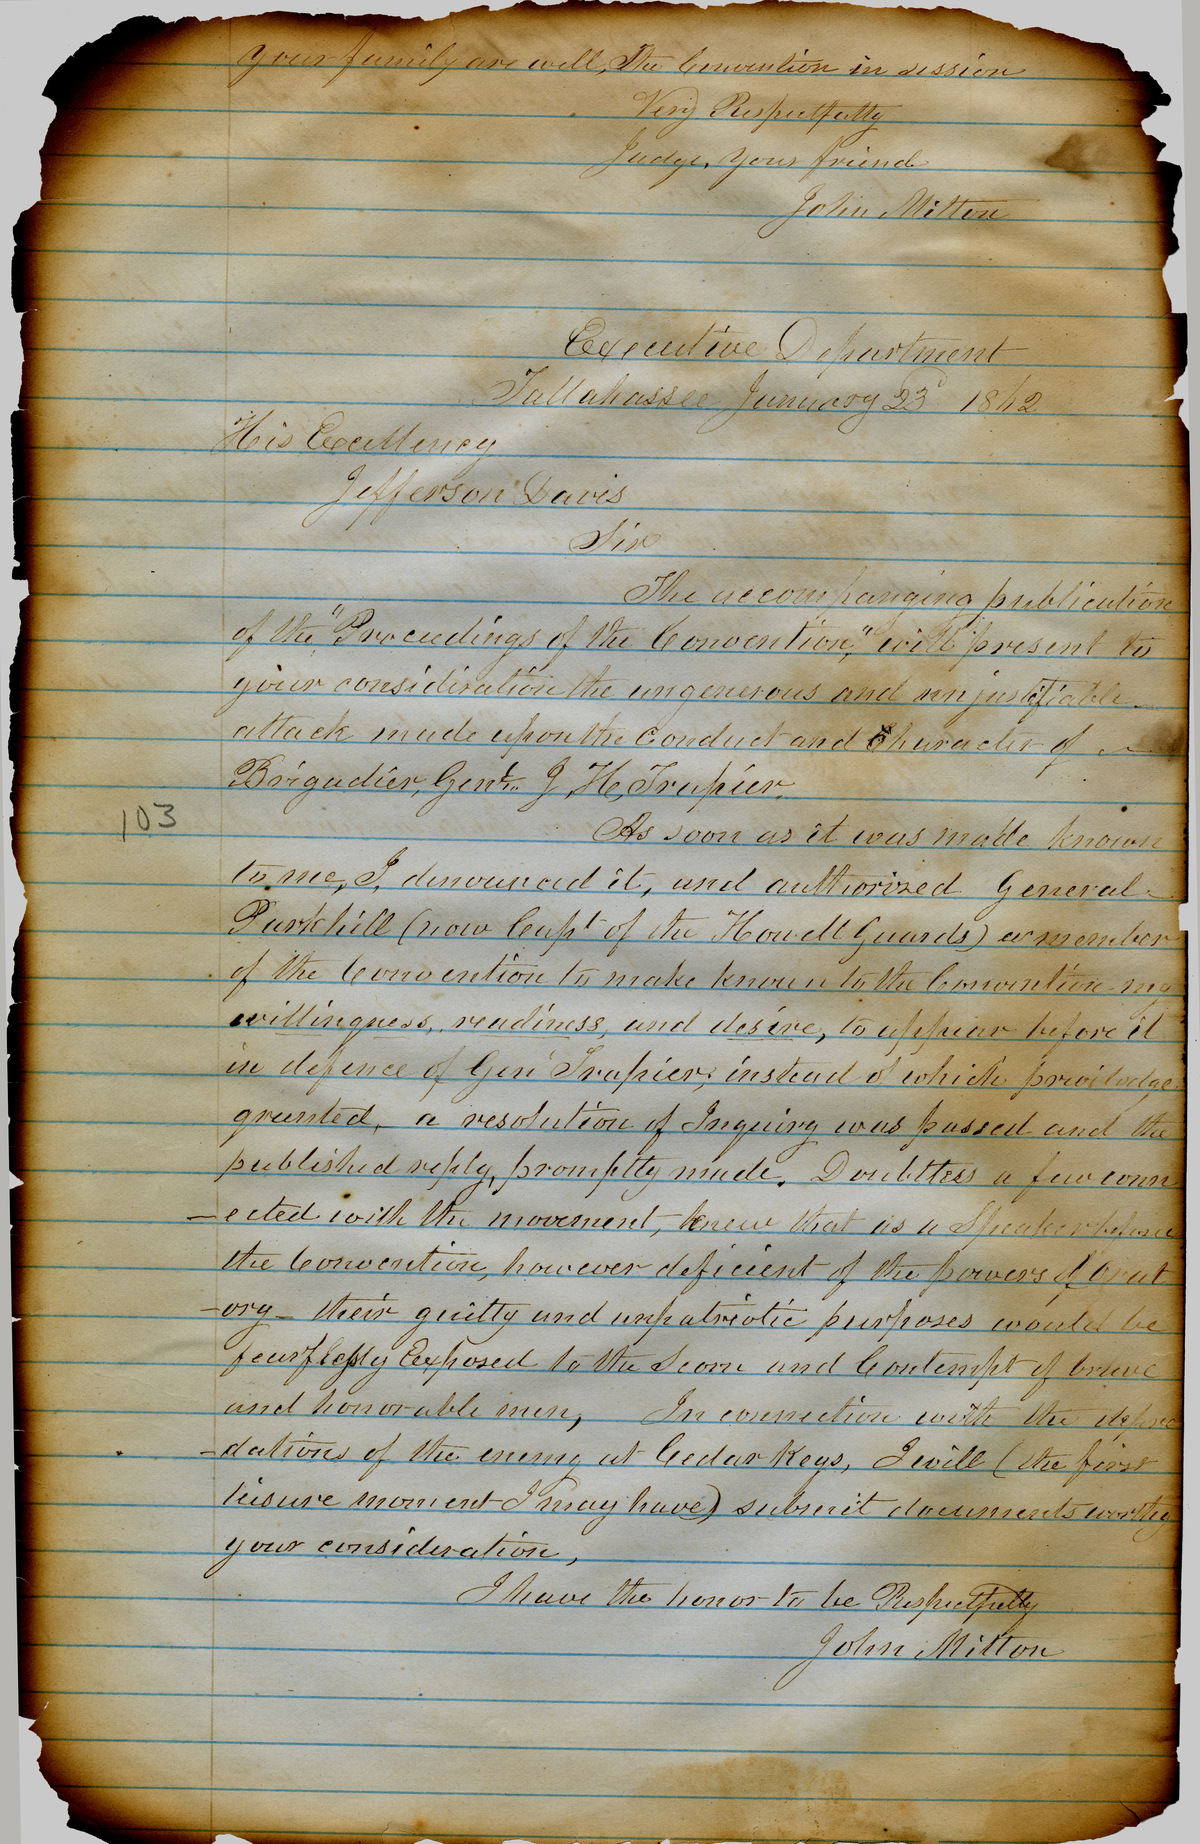 your family are well, The Convention in session
Very Respectfully
Judge, your friend
John Milton
Executive Department
Tallahassee January 23d 1862
His Excellency
Jefferson Davis
Sir
The accompanying publication
of the "Proceedings of the Convention," will present to
your consideration the ungenerous and unjustifiable
attack made upon the Conduct and Character of a
Brigadier, Genl. J, H, Trapier,
103
As soon as it was made known
to me, I, denounced it, and authorized General
Parkhill (now Capt of the Howell Guards) a member
of the Convention to make known to the Convention my
willingness, readiness, and desire, to appear before it
in defence of Gen Trapier, instead of which priviledge
granted, a resolution of Inquiry was passed and the
published reply, promptly made. Doubtless a few conn
-ected with the movement, knew that as a Speaker before
the Convention, however deficient of the powers of Orat
-ory - their guilty and unpatriotic purposes would be
fearflessly Exposed to the Scorn and Contempt of brave
and honorable men, In connection with the depre
-dations of the enemy at Cedar Keys, I will (the first
leisure moment I may have) submit documents worthy
your consideration,
I have the honor to be Respectfully
John Milton